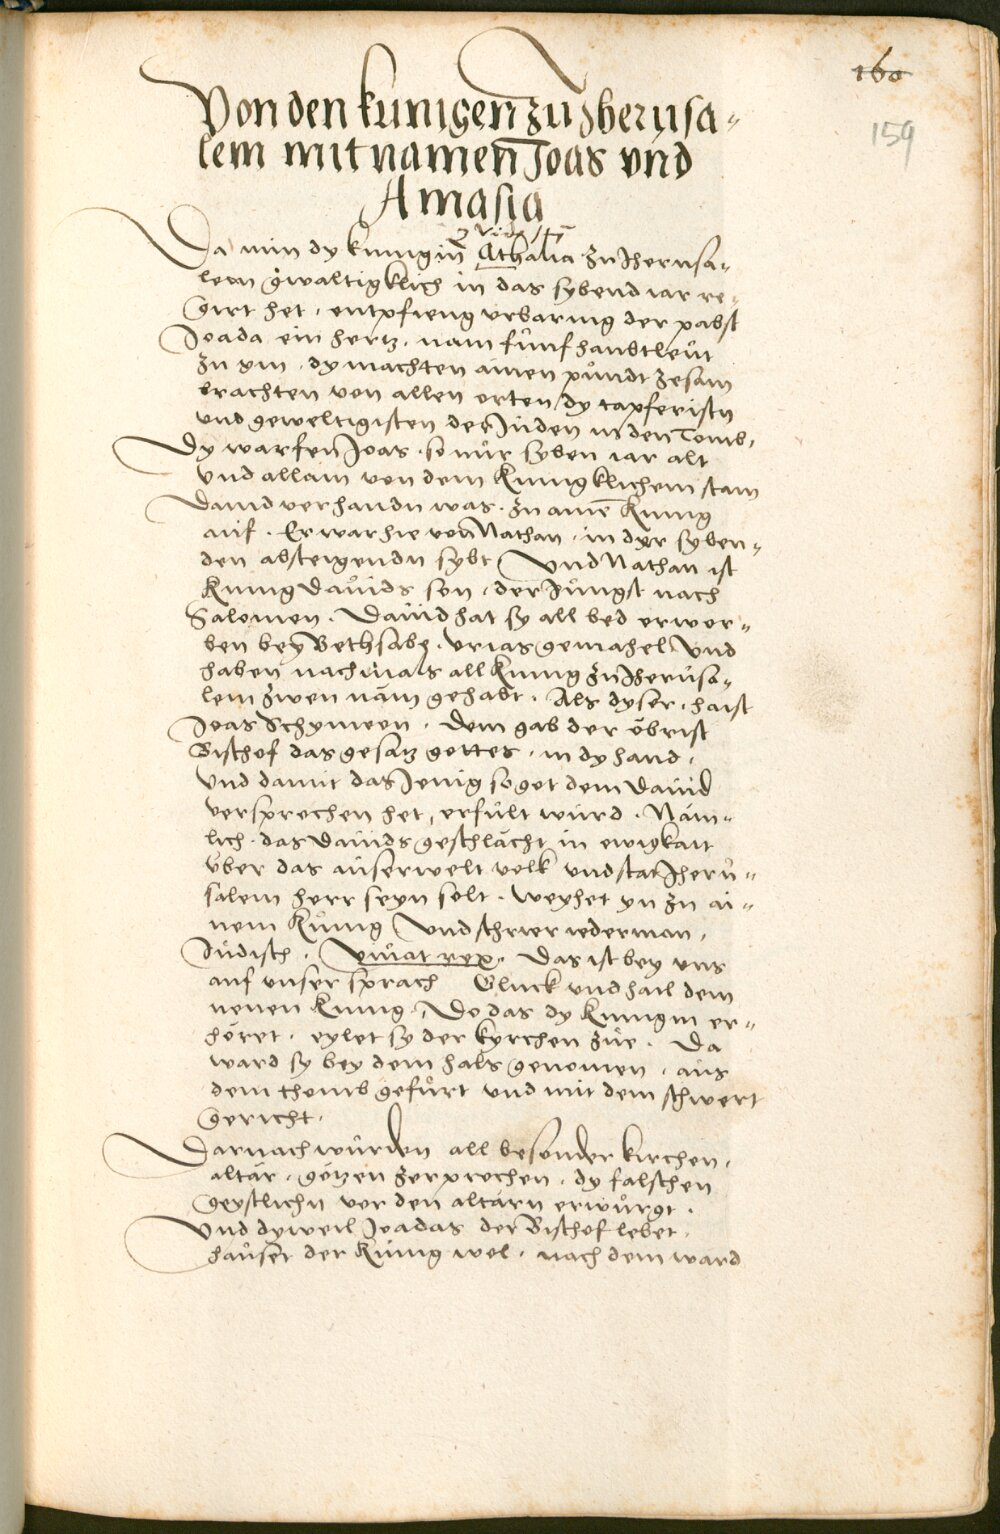 160
159
Von den kunigen zu Iherusa-
lem mit namen Joas vnd
Amasia
Da nun dy kunigin Athalia zu Iherusa-
lem gwaltigklich in das sybend iar re-
girt het, entpfieng vrbaring der pabst
Joada ein hertz, nam fůnf haubtleůt
zu ym, dy machten ainen půndt zesam
brachten von allen orten dy tapferistn
vnd geweltigisten der Juden in den Tomb,
Dy warfen Joas, so nůr syben iar alt
vnd allain von dem Kunigklichem stam
Dauid verhandn was, zu ainē Kunig
auf. Er war hie von Nathan, in dyr syben-
den absteigendn sybt Vnd Nathan ist
Kunig Dauids son, der Jůngst nach
Salomon. Dauid hat sy all bed erwor-
ben bey Bethsabe, vrias gemahel, Vnd
haben nachmals all Kunig zu Iherusa-
lem zwen nām gehabt. Als dyser, haist
Joas Schymeon. Dem gab der ŏbrist
Bischof das gesatz gottes, in dy hand,
Vnd damit das Jenig so got dem Dauid
versprochen het, erfůlt wurd. Nām-
lich, das Dauids geschlächt in ewigkait
ůber das auserwelt volk vnd stat Iheru-
salem herr seyn solt. Weyhet yn zu ai-
nem Kůnig Vnd schrier iederman,
Jůdisch, Viuat rex. Das ist bey vns
auf vnser sprach Gluck vnd hail dem
neuen Kunig, Do das dy Kunigin er-
hŏret, eylet sy der kyrchen zůe. Da
ward sy bey dem hals genomen, aus
dem thomb gefůrt vnd mit dem schwert
gericht.
Darnach wurden all besonder kirchen,
altär, gŏtzen zerprochen, dy falschen
geystlichn vor den altärn erwůrgt.
Vnd dyweil Joadas der Bischof lebet,
hauset der Kunig wol, nach dem ward